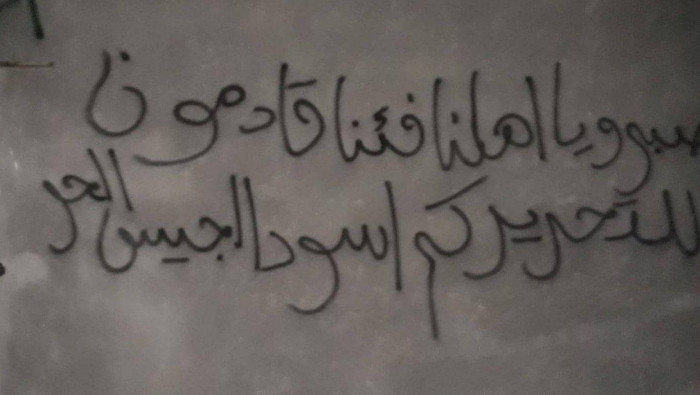 صبرو يا اهلنا فئنا قادمون
للتحريركم اسود الجيش الحر